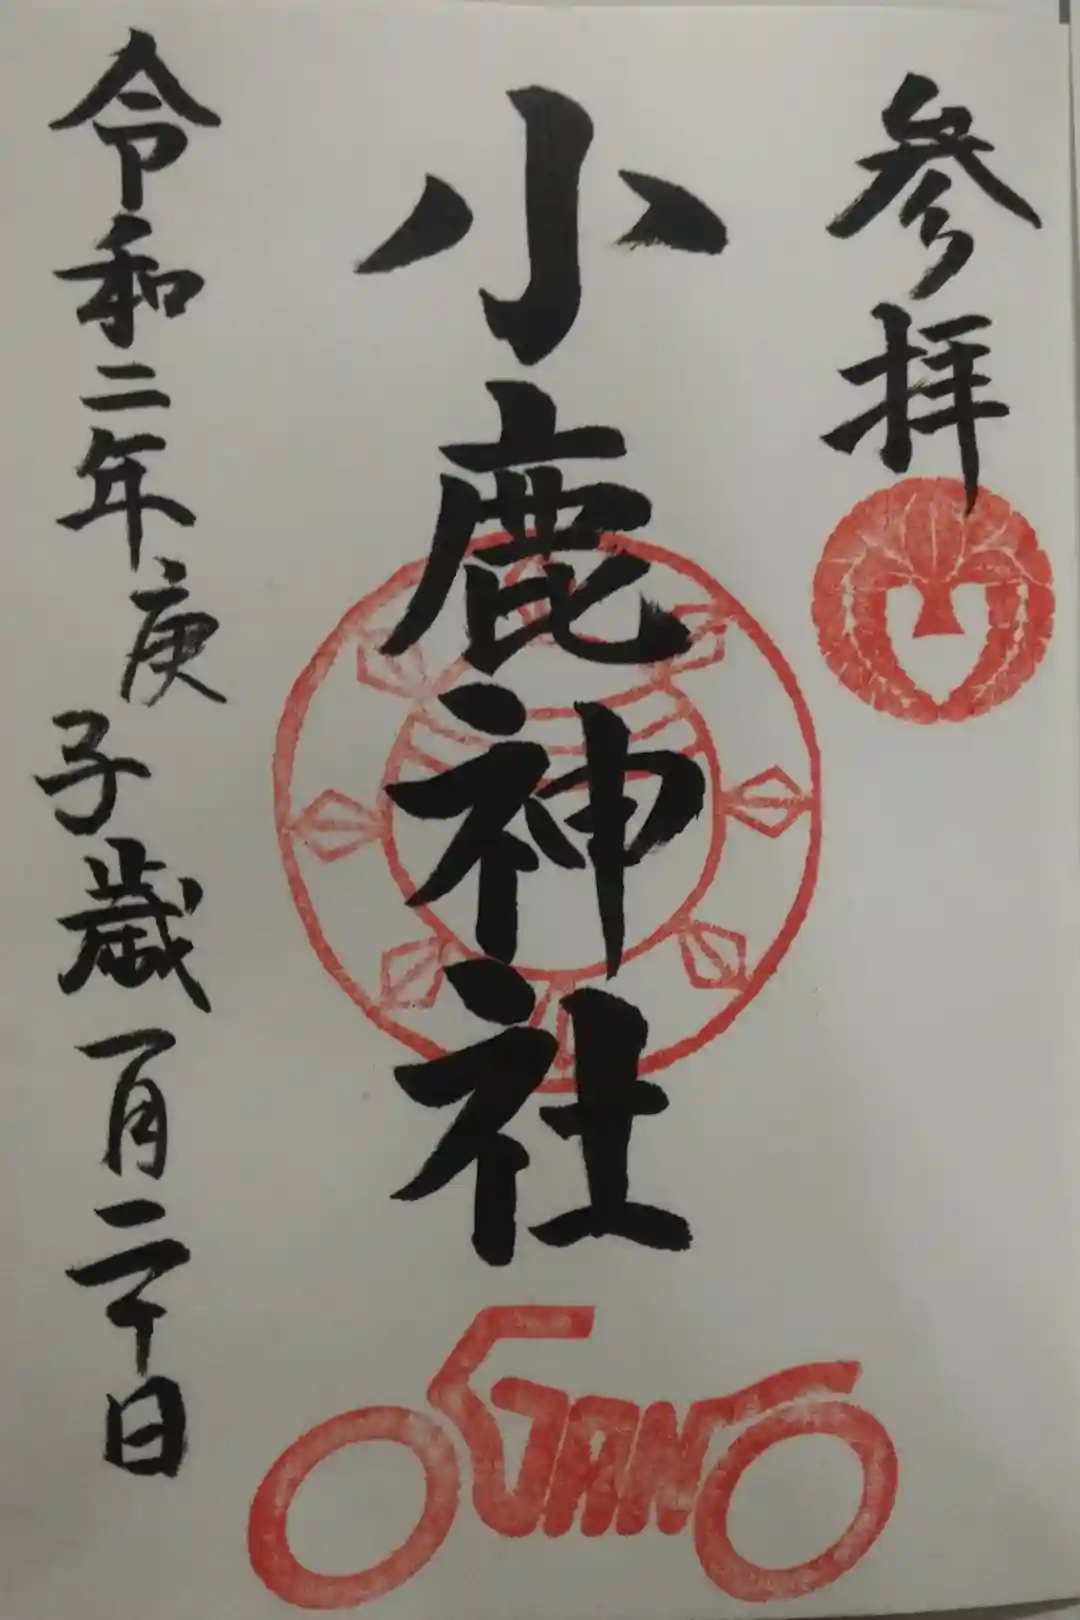 参拝
小鹿神社
令和二年庚子歳一月二十日
OGANO